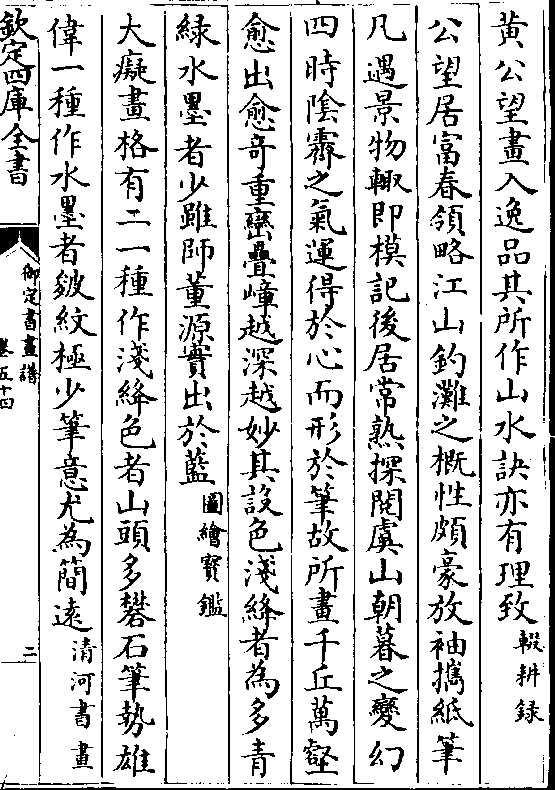 黄公望畫入逸品其所作山水訣亦有理致輟耕録
公望居富春領略江山釣灘之概性頗豪放袖攜紙筆
凡遇景物輙即模記後居常熟探閱虞山朝暮之變幻
四時陰霽之氣運得於心而形於筆故所畫千丘萬壑
愈出愈奇重巒疊嶂越深越妙其設色淺絳者為多青
緑水墨者少雖師董源實出於藍圖繪寳鑑
大癡畫格有二一種作淺絳色者山頭多礬石筆勢雄
偉一種作水墨者皴紋極少筆意尤為簡遠清河書畫
欽定四庫全書
御定書畫譜
卷五十四
二